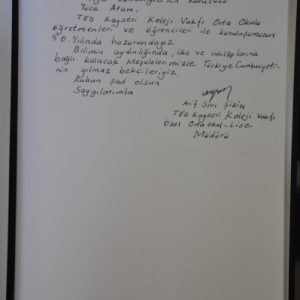 Yüce Atam,
TED Kayseri Koleji Vakfı Orta Okulu
öğretmenleri ve öğrencileri ile kuruluşumuzun
50 Yılında huzurundayız.
Bilimin aydınlığında, ilke ve inkılaplarına
bağlı kalacak Meşalelerimizle Türkiye Cumhuriyeti-
nin yılmaz bekçileriyiz.
Ruhun şad olsun.
Saygılarımla
Arif
TED Kayseri Koleji Vakfı
Özel Ortaokul-Lise
Müdürü